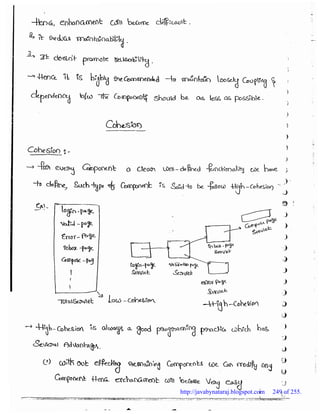 → Hence, enhancement will become difficult.
2. It reduces maintainability.
3. It doesn't promote reusability.
→ Hence it is highly recommended to maintain loosely coupling &
dependency b/w the components should be as less as possible.
Cohesion
Cohesion :-
→ For every component a clear well-defined functionality we have
to define, such type of component is said to be follow High-cohesion.
Ex:-
login-page
valid-page
Error-page
Inbox-page
Compose-page
TotalServlet
Low-Cohesion
login-page
Servlet
validation-page
Servlet
Inbox-page
Servlet
Compose page
Servlet
error page
Servlet
High-Cohesion
→ High-Cohesion is always a good programming practice which has
several Advantages.
(1) with out effecting remaining components we can modify any
component. Hence enhancement will become very easy.
http://javabynataraj.blogspot.com 249 of 255.